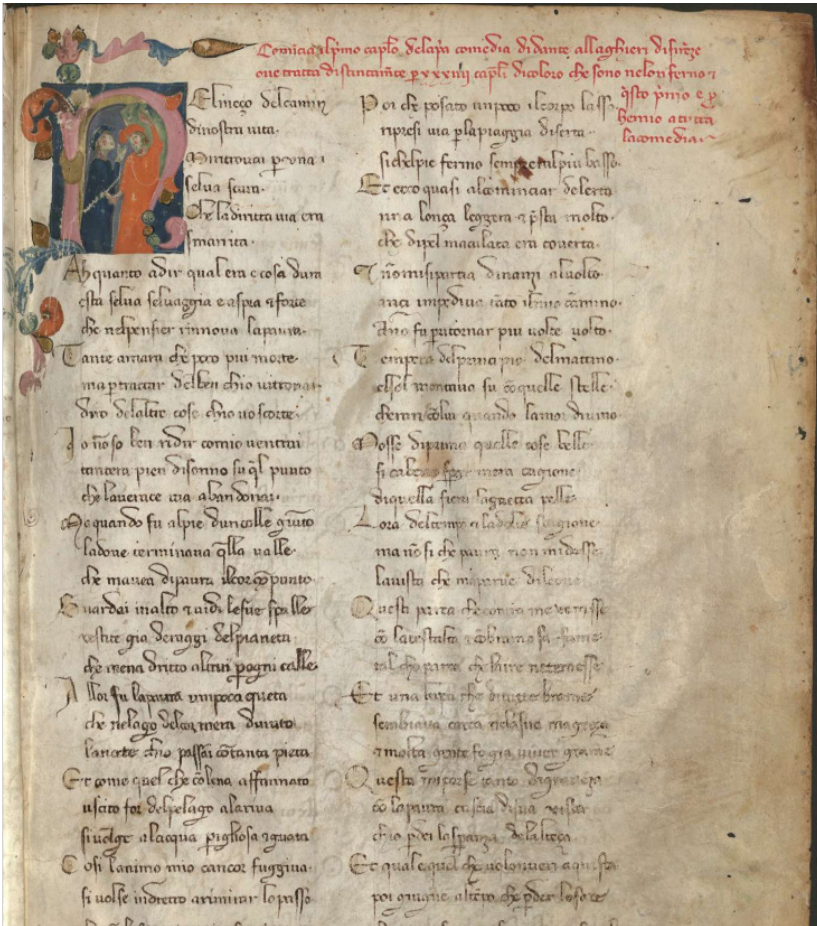 Comīcia il p̄mo capl̄o dela p̄a comedia di dante allaghieri di fir̄ze
oue tratta distintam̄te p xxxiiij capl̄i di coloro che sono nelonferno ⁊
q̄sto p̄mo e p
hemio a tutta
la comedia ·
Nel meço del camin
di nostra uita ·
Mi ritrouai p una
selua scura ·
Che la diritta uia era
smarrita ·
Ah quanto a dir qual era e cosa dura
esta selua seluaggia e aspra ⁊ forte
che nel pensier rinnoua la paura ·
Tante amara che poco piu morte ·
ma p tractar del ben chio ui trouai ·
diro delaltre cose chio uo scorte ·
Io nō so ben ridir comio uentrai
tantera pien di sonno su q̄l punto
che la uerace uia abandonai ·
Ma quando fu al pie dun colle giunto
la doue terminaua q̄lla ualle ·
che mauea di paura il cor 9punto
Guardai in alto ⁊ uidi le sue spalle
uestite gia de raggi del pianeta
che mena dritto altrui p ogni calle
Allor fu la paura un poco queta
che nelago del cor mera durato
la nocte chio passai cō tanta pieta
Et come quel che cō lena affannato
uscito for del pelago ala riua
si uolge alacqua pigliosa ⁊ guata
Cosi lanimo mio cancor fuggiua ·
si uolse indietro a rimirar lo passo
Poi che posato un poco il corpo lasso
ripresi uia p la piaggia diserta ·
si chel pie fermo sempre era l piu basso ·
Et ecco quasi al cominciar delerta
una lonça leggera ⁊ p̄sta molto ·
che di pel maculata era couerta ·
⁊ nō mi si partia dinanzi al uolto
ançi impediua tāto il mio cāmino ·
chio fu p ritornar piu uolte uolto ·
Tempera del principio del mattino ·
el sol montaua su cō quelle stelle ·
cheran cō lui quando lamor diuino
Mosse di prima quelle cose belle ·
si cabene spar mera cagione
di quella fiera la gaetta pelle ·
Lora del tempo ⁊ la dolce stagione
ma nō si che paura non mi desse
la uista che mapparue di leone
Questi parea che contra me uenesse
cō la testalta ⁊ cō rabiosa fame
tal che parea che laire ne temesse
Et una lupa che di tutte brame
sembiaua carca nela sua magreça
⁊ molte gente fe gia uiuer grame
Questa mi porse tanto di graueça
cō la paura cuscia di sua uista
chio pdei la speranza de lalteça ·
Et quale quel che uolontieri aquista
poi giugne altēpo che pder lo face